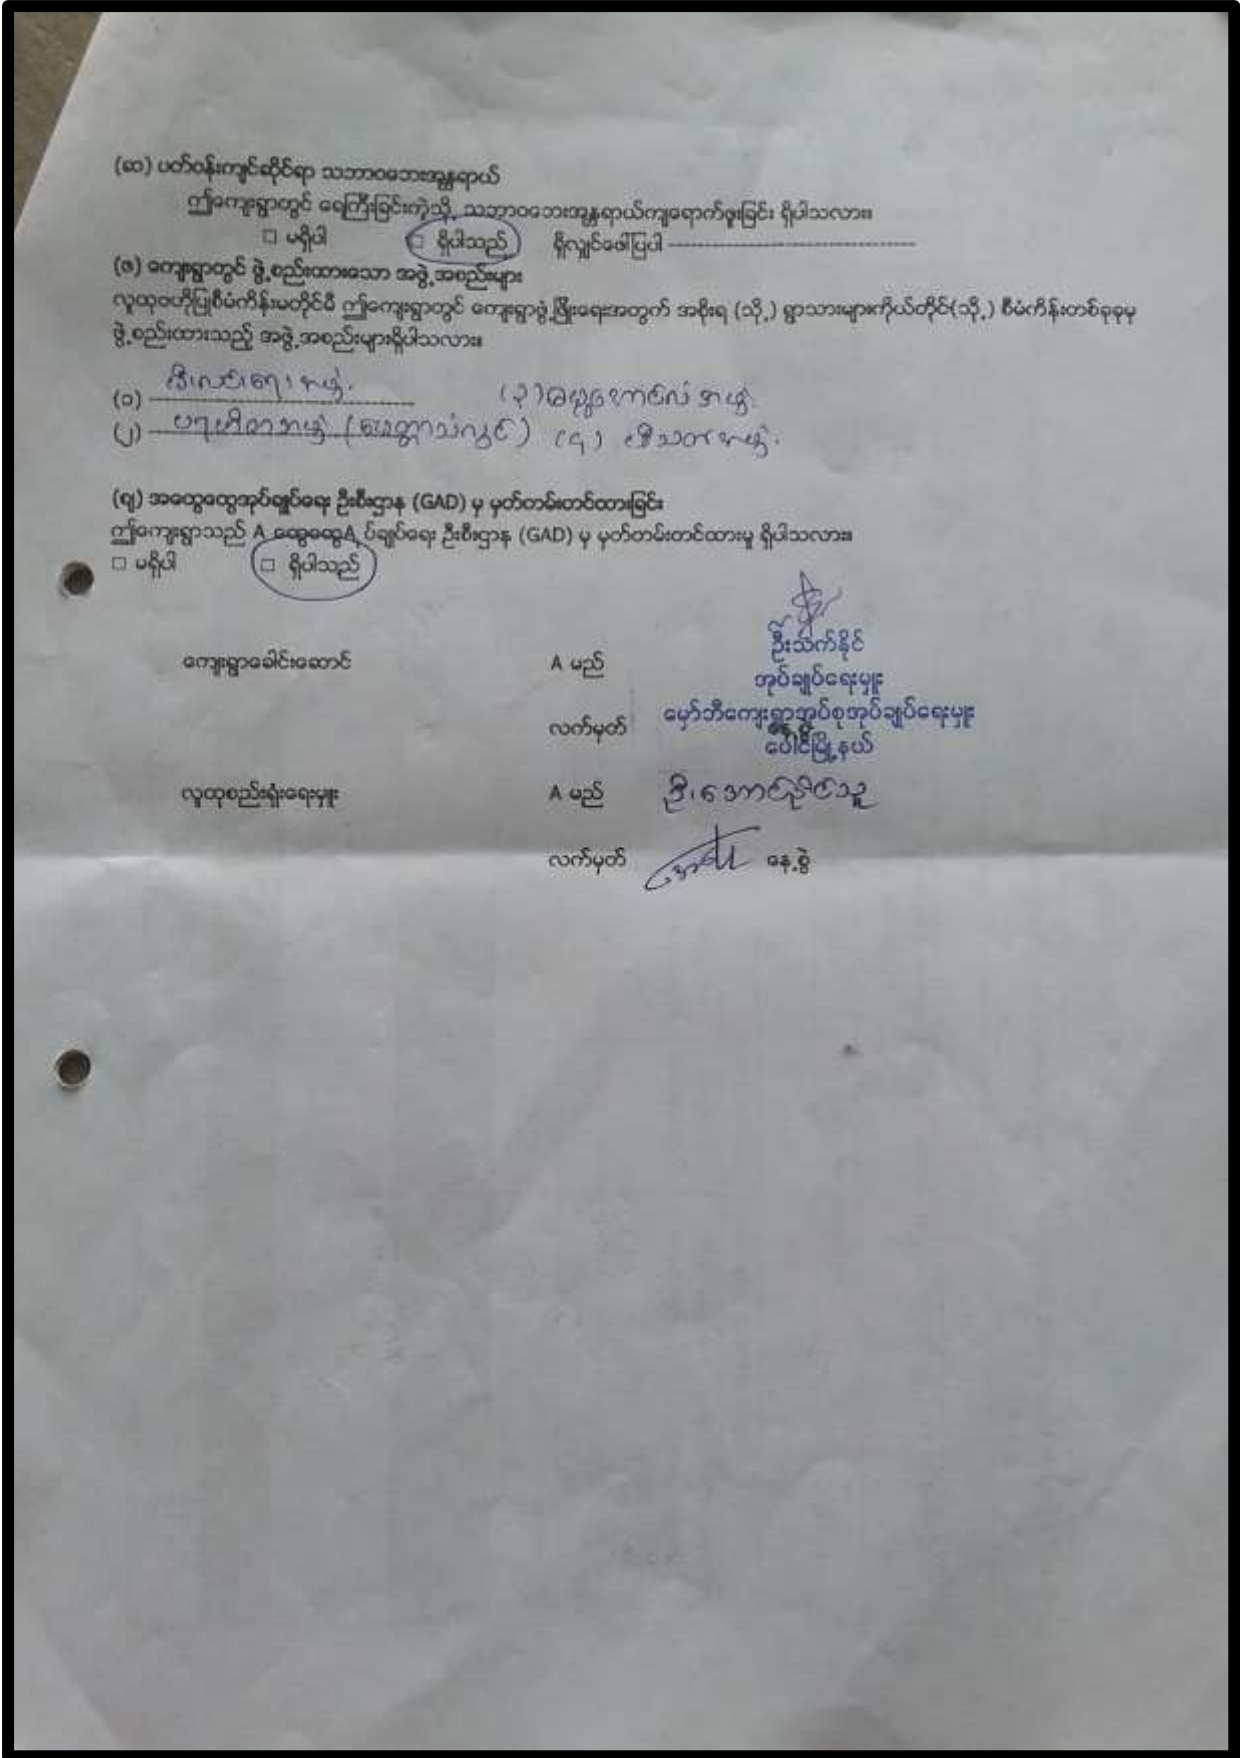 (ဆ) ပတ်ဝန်းကျင်ဆိုင်ရာ သဘာဝဘေးအန္တရာယ်
ဤကျေးရွာတွင် ရေကြီးခြင်းကဲ့သို့ သဘာဝဘေးအန္တရာယ်ကျရောက်ဖူးခြင်း ရှိပါသလား။
□ မရှိပါ □ ရှိပါသည် ရှိလျှင်ဖေါ်ပြပါ ---------------------------------
(ဇ) ကျေးရွာတွင် ဖွဲ့စည်းထားသော အဖွဲ့အစည်းများ
လူထုဗဟိုပြုစီမံကိန်းမတိုင်မီ ဤကျေးရွာတွင် ကျေးရွာဖွံ့ဖြိုးရေးအတွက် အစိုးရ (သို့) ရွာသားများကိုယ်တိုင်(သို့) စီမံကိန်းတစ်ခုခုမှ
ဖွဲ့စည်းထားသည့် အဖွဲ့အစည်းများရှိပါသလား။
(၁) မီးလင်းရေး အဖွဲ့. (၃) ဓမ္မအောင်လံ အဖွဲ့
(၂) ပရဟိတအဖွဲ့ (မေတ္တာသံလွင်) (၄) မီးသတ်အဖွဲ့.
(ဈ) အထွေထွေအုပ်ချုပ်ရေး ဦးစီးဌာန (GAD) မှ မှတ်တမ်းတင်ထားခြင်း
ဤကျေးရွာသည် A ထွေထွေA ပ်ချုပ်ရေး ဦးစီးဌာန (GAD) မှ မှတ်တမ်းတင်ထားမှု ရှိပါသလား။
□ မရှိပါ □ ရှိပါသည်
ကျေးရွာခေါင်းဆောင် A မည် ဦးသက်နိုင်
အုပ်ချုပ်ရေးမှူး
လက်မှတ် မှော်ဘီကျေးရွာအုပ်စုအုပ်ချုပ်ရေးမှူး
ပေါင်မြို့နယ်
လူထုစည်းရုံးရေးမှူး A မည် ဦးအောင်နိုင်သူ
လက်မှတ် နေ့စွဲ